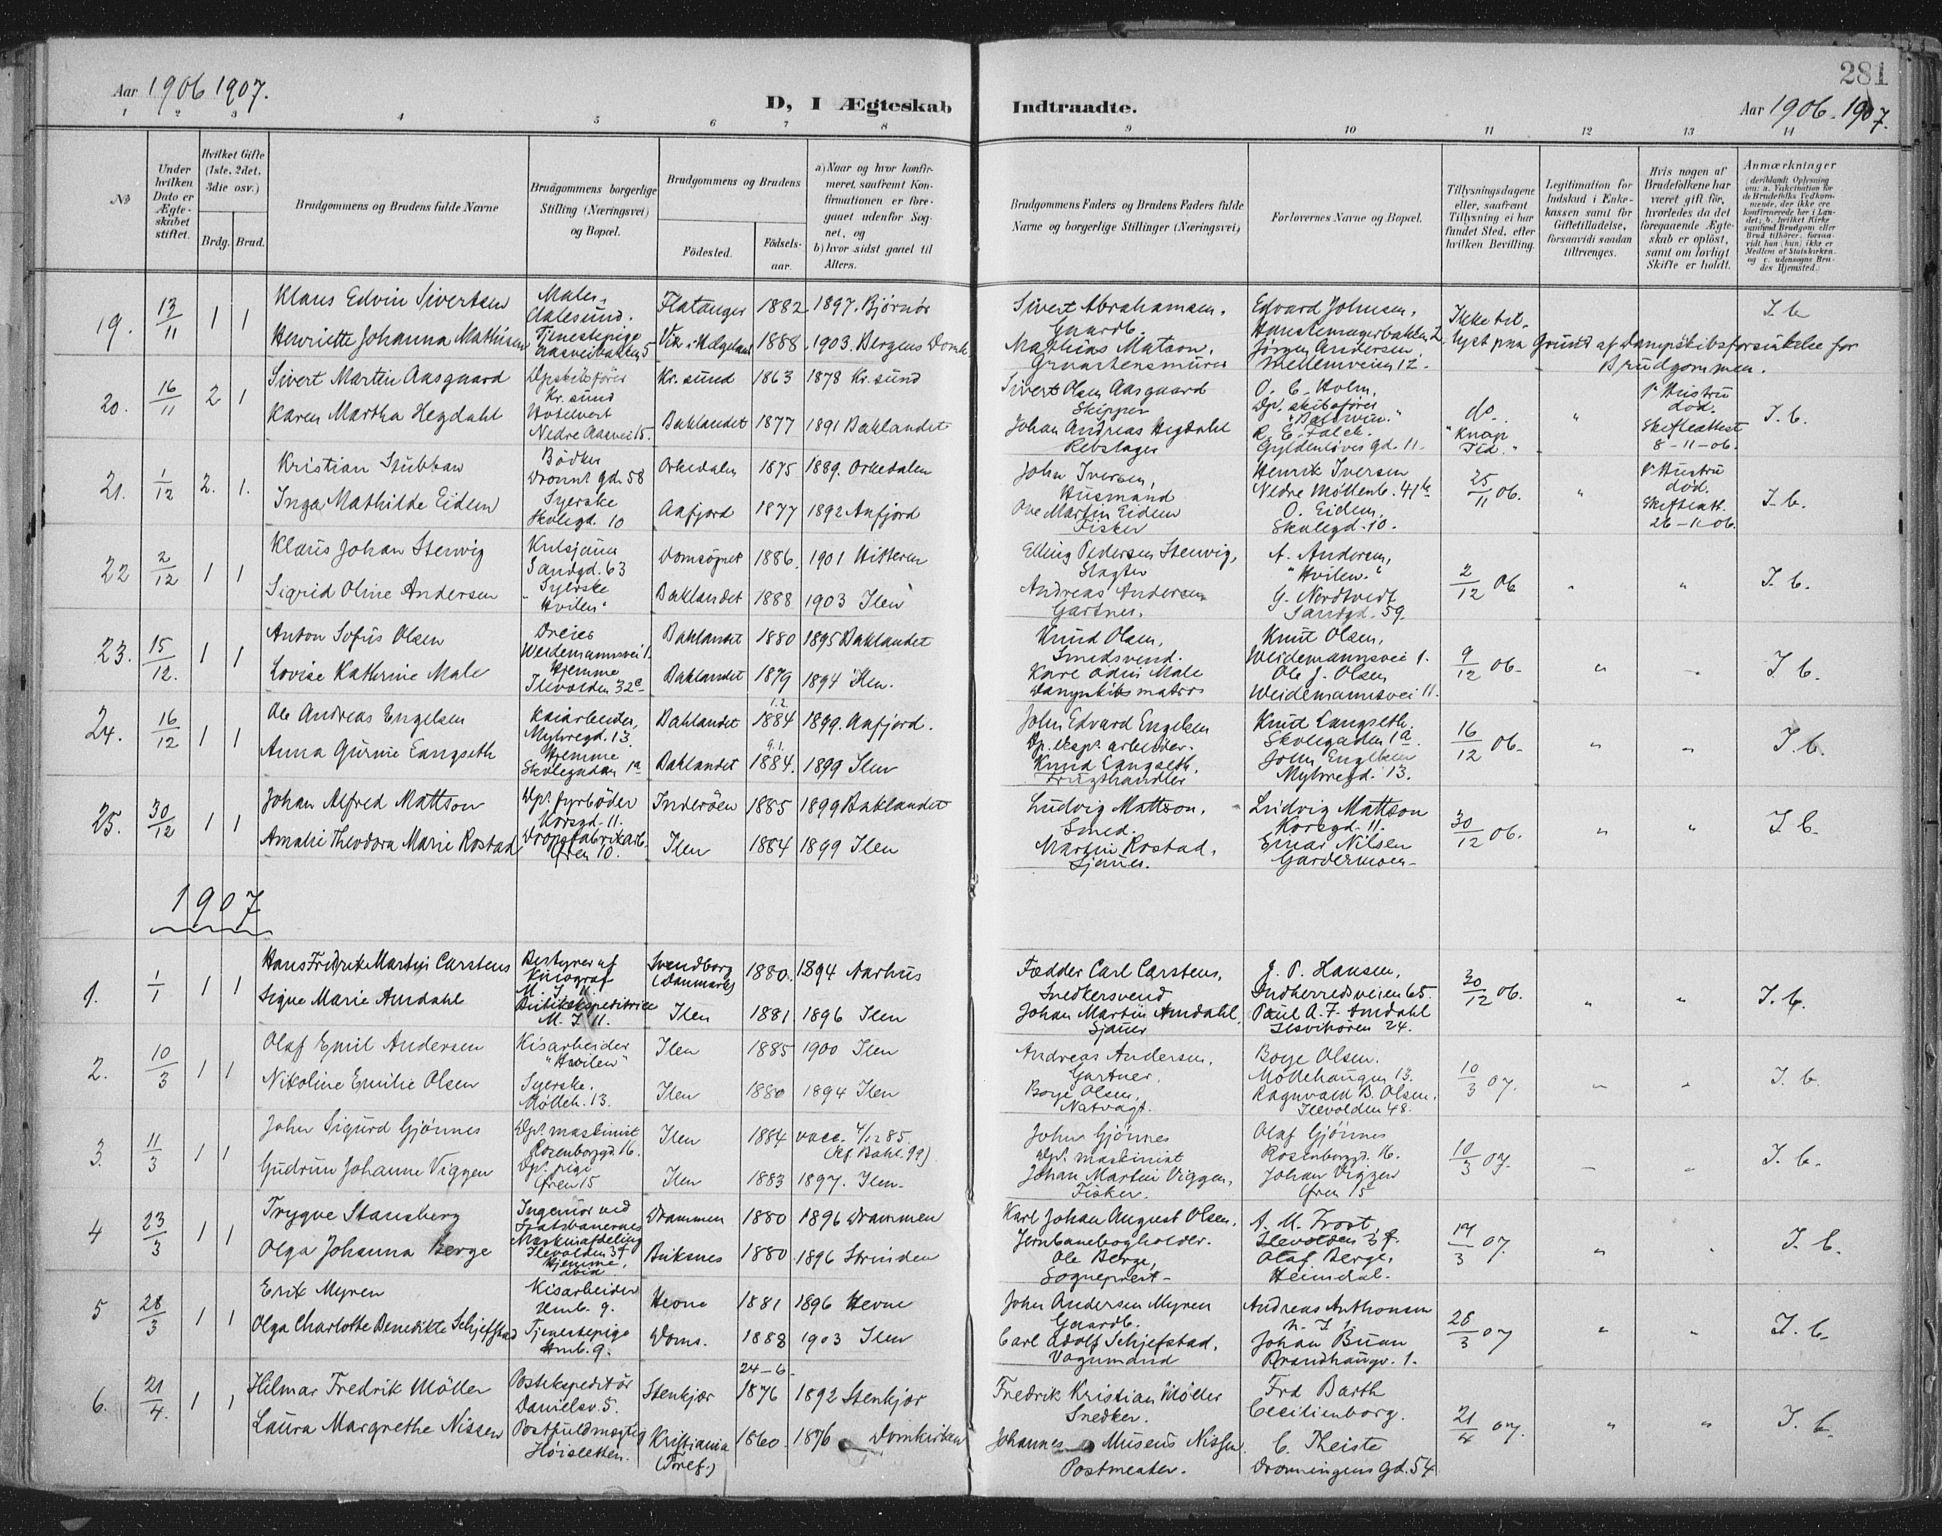 281
Aar 1906 1907.
D, I Ægteskab Indtraadte.
Aar 1906. 1907.
1 2 3 4 5 6 7 8 9 10 11 12 13 14
No
Under hvilken Dato er Ægteskabet stiftet.
Hvilket Gifte (1ste, 2det, 3die osv.)
Brdg. Brud.
Brudgommens og Brudens fulde Navne
Brudgommens borgerlige Stilling (Næringsvei) og Bopæl.
Brudgommens og Brudens
Fødested. Fødselsaar.
a) Naar og hvor konfirmeret, saafremt Konfirmationen er foregaaet udenfor Sognet, og
b) hvor sidst gaaet til Alters.
Brudgommens Faders og Brudens Faders fulde Navne og borgerlige Stillinger (Næringsvei)
Forlovernes Navne og Bopæl.
Tillysningsdagene eller, saafremt Tillysning ei har fundet Sted, efter hvilken Bevilling.
Legitimation for Indskud i Enkekassen samt for Giftetilladelse, forsaavidt saadan tiltrænges.
Hvis nogen af Brudefolkene har været gift før, hvorledes da det foregaaende Ægteskab er opløst, samt om lovligt Skifte er holdt.
Anmærkninger
19. 13/11 1 1
Klaus Edvin Sivertsen Maler, Aalesund. Flatanger 1882 1897. Bjørnør
Sivert Abrahamsen, Gaardb. Edvard Johnsen, Ikke til- I. b
Henriette Johanna Mathisen Tjenestepige Aasveibakken 5 Vik i Helgeland 1888 1903. Bergens Domk
Mathias Matson, Jørgen Andersen Mellemveien 12. lyst paa Grund af Dampskibsforsinkelse for Brudgommen.
20. 16/11 2 1
Sivert Martin Aasgaard Dpskibsfører Kr. sund Kr. sund 1863 1878 Kr. sund
Sivert Olsen Aasgaard Skipper O. C. Holm, Dp. skibsfører do. " Hustru død. I. b.
Karen Martha Hegdahl Nedre Aasvei 15. Baklandet 1877 1891 Baklandet
Johan Andreas Hegdahl Rebslager R. E. Falck. Gyldenløves gd. 11. "Knap Tid." Skifteattest 8-11-06.
21. 1/12 2. 1.
Kristian Stubban Bødker Dronn. gd. 58 Orkedalen 1875 1889. Orkedalen
John Iversen, Husmand Henrik Iversen Nedre Møllenb. 41b 25/11 06. " Hustru død. I. b.
Inga Mathilde Eidem Syerske Skolegd. 10 Aafjord 1877 1892 Aafjord
Ove Martin Eidem Fisker O. Eidem, Skolegd. 10. Skifteatt. 26-11-06.
22 2/12 1 1
Klaus Johan Stenvig Kulsjauer Sandgd. 63 Domsognet 1886. 1901 Hitteren
Elling Pedersen Stenvig, Slagter A. Andersen, "Hvilen." 2/12 06 " " I. b.
Sigrid Oline Andersen Syerske "Hvilen" Baklandet 1888 1903 Ilen
Andreas Andersen Gartner. G. Nordtvedt Sandgd. 59.
23. 15/12. 1 1
Anton Sofus Olsen Dreier Weidemannsvei 1. Baklandet 1880 1895 Baklandet
Knud Olsen, Smedsvend. Knut Olsen, Weidemannsvei 1. 9/12 06. " " I. b.
Lovise Kathrine Male Hjemme Ilevolden 32c Baklandet 1879 1894 Ilen.
Karl Odin Male Dampskibsmatros Ole J. Olsen Weidemannsvei 11.
24. 16/12 1 1
Ole Andreas Engelsen Kaiarbeider, Myhregd. 13. Baklandet 1.2 1884 1899. Aafjord.
John Edvard Engelsen Dp. eksp. arbeider. Knut Langseth. Skolegaden 1a 16/12 06. " " I. b.
Anna Gurine Langseth Hjemme Skolegaden 1a Baklandet 9.1. 1884. 1899 Ilen
Knud Langseth. Frugthandler John Engelsen Myhregd. 13.
25. 30/12 1 1
Johan Alfred Mattson Dp. fyrbøder Korsgd. 11. Inderøen 1885 1899 Baklandet
Ludvig Mattson, Smed. Ludvig Mattson Korsgd. 11. 30/12 06. " " I. b.
Amalie Theodora Marie Rostad Øren 10. Ilen 1884 1899 Ilen
Martin Rostad, Sjauer. Einar Nilsen Gardermoen
1907
1. 1/1 1 1
Hans Fredrik Martin Carstens Bestyrer af Kinograf M. I. 11. Svendborg (Danmark) 1880. 1894 Aarhus
Fædder Carl Carstens, Snedkersvend J. P. Hansen, Indherredsveien 65. 30/12 06. " " I. b.
Signe Marie Amdahl Butikekspeditrice M. I. 11. Ilen 1881 1896 Ilen
Johan Martin Amdahl, Sjauer Paul A. F. Amdahl Ilsvikøren 24.
2. 10/3 1 1
Olaf Emil Andersen Kisarbeider "Hvilen" Ilen 1885 1900 Ilen
Andreas Andersen, Gartner, Boye Olsen. Møllehaugen 13. 10/3 07. " " I. b.
Nikoline Emilie Olsen Syerske. Mølleh. 13. Ilen 1880 1894 Ilen
Boye Olsen, Natvagt. Ragnvald B. Olsen. Ilevolden 48.
3. 11/3 1 1
John Sigurd Gjønnes Dp. maskinist Rosenborggd. 16. Ilen 1884 vacc. 4/12 85. (kf. Bakl. 99)
John Gjønnes Dp. maskinist Olaf Gjønnes Rosenborggt. 16. 10/3 07. " " I. b.
Gudrun Johanne Viggen Dp. pige Øren 15 Ilen 1883 1897. Ilen.
Johan Martin Viggen, Fisker. Johan Viggen Øren 15
4 23/3 1 1
Trygve Stansberg Ingeniør ved Statsbanernes Maskinafdeling Ilevolden 3f Drammen 1880 1896 Drammen
Karl Johan August Olsen. Jernbanebogholder. A. M. Frost, Ilevolden 3f. 17/3 07. " " I. b.
Olga Johanna Berge Hjemme, ibid Buksnes 1880 1896 Strinden
Ole Berge, Sogneprest Olaf Berge, Heimdal.
5 28/3 1 1
Erik Myren Kisarbeider Hmb. 9. Hevne 1881 1896 Hevne
John Andersen Myren Gaardb. Andreas Anthonsen N. I. 1. 28/3 07 " " I. b.
Olga Charlotte Benedikte Schjefstad Tjenestepige Hmb. 9. Doms. 1888 1903 Ilen
Carl Adolf Schjefstad, Vognmand Johan Buan Brandhaugv. 1.
6. 21/4. 1 1
Hilmar Fredrik Møller Postekspeditør Danielsv. 5. Stenkjær 24-6. 1876 1892 Stenkjær
Fredrik Kristian Møller Snedker. Frd Barth Cecilienborg. 21/4 07. " " I. b.
Laura Margrethe Nissen Postfuldmægtig Høisletten. Kristiania (Tref.) 1860. 1876 Domkirken
Johannes Musæus Nissen Postmester. C. Theiste Dronningens gd. 54